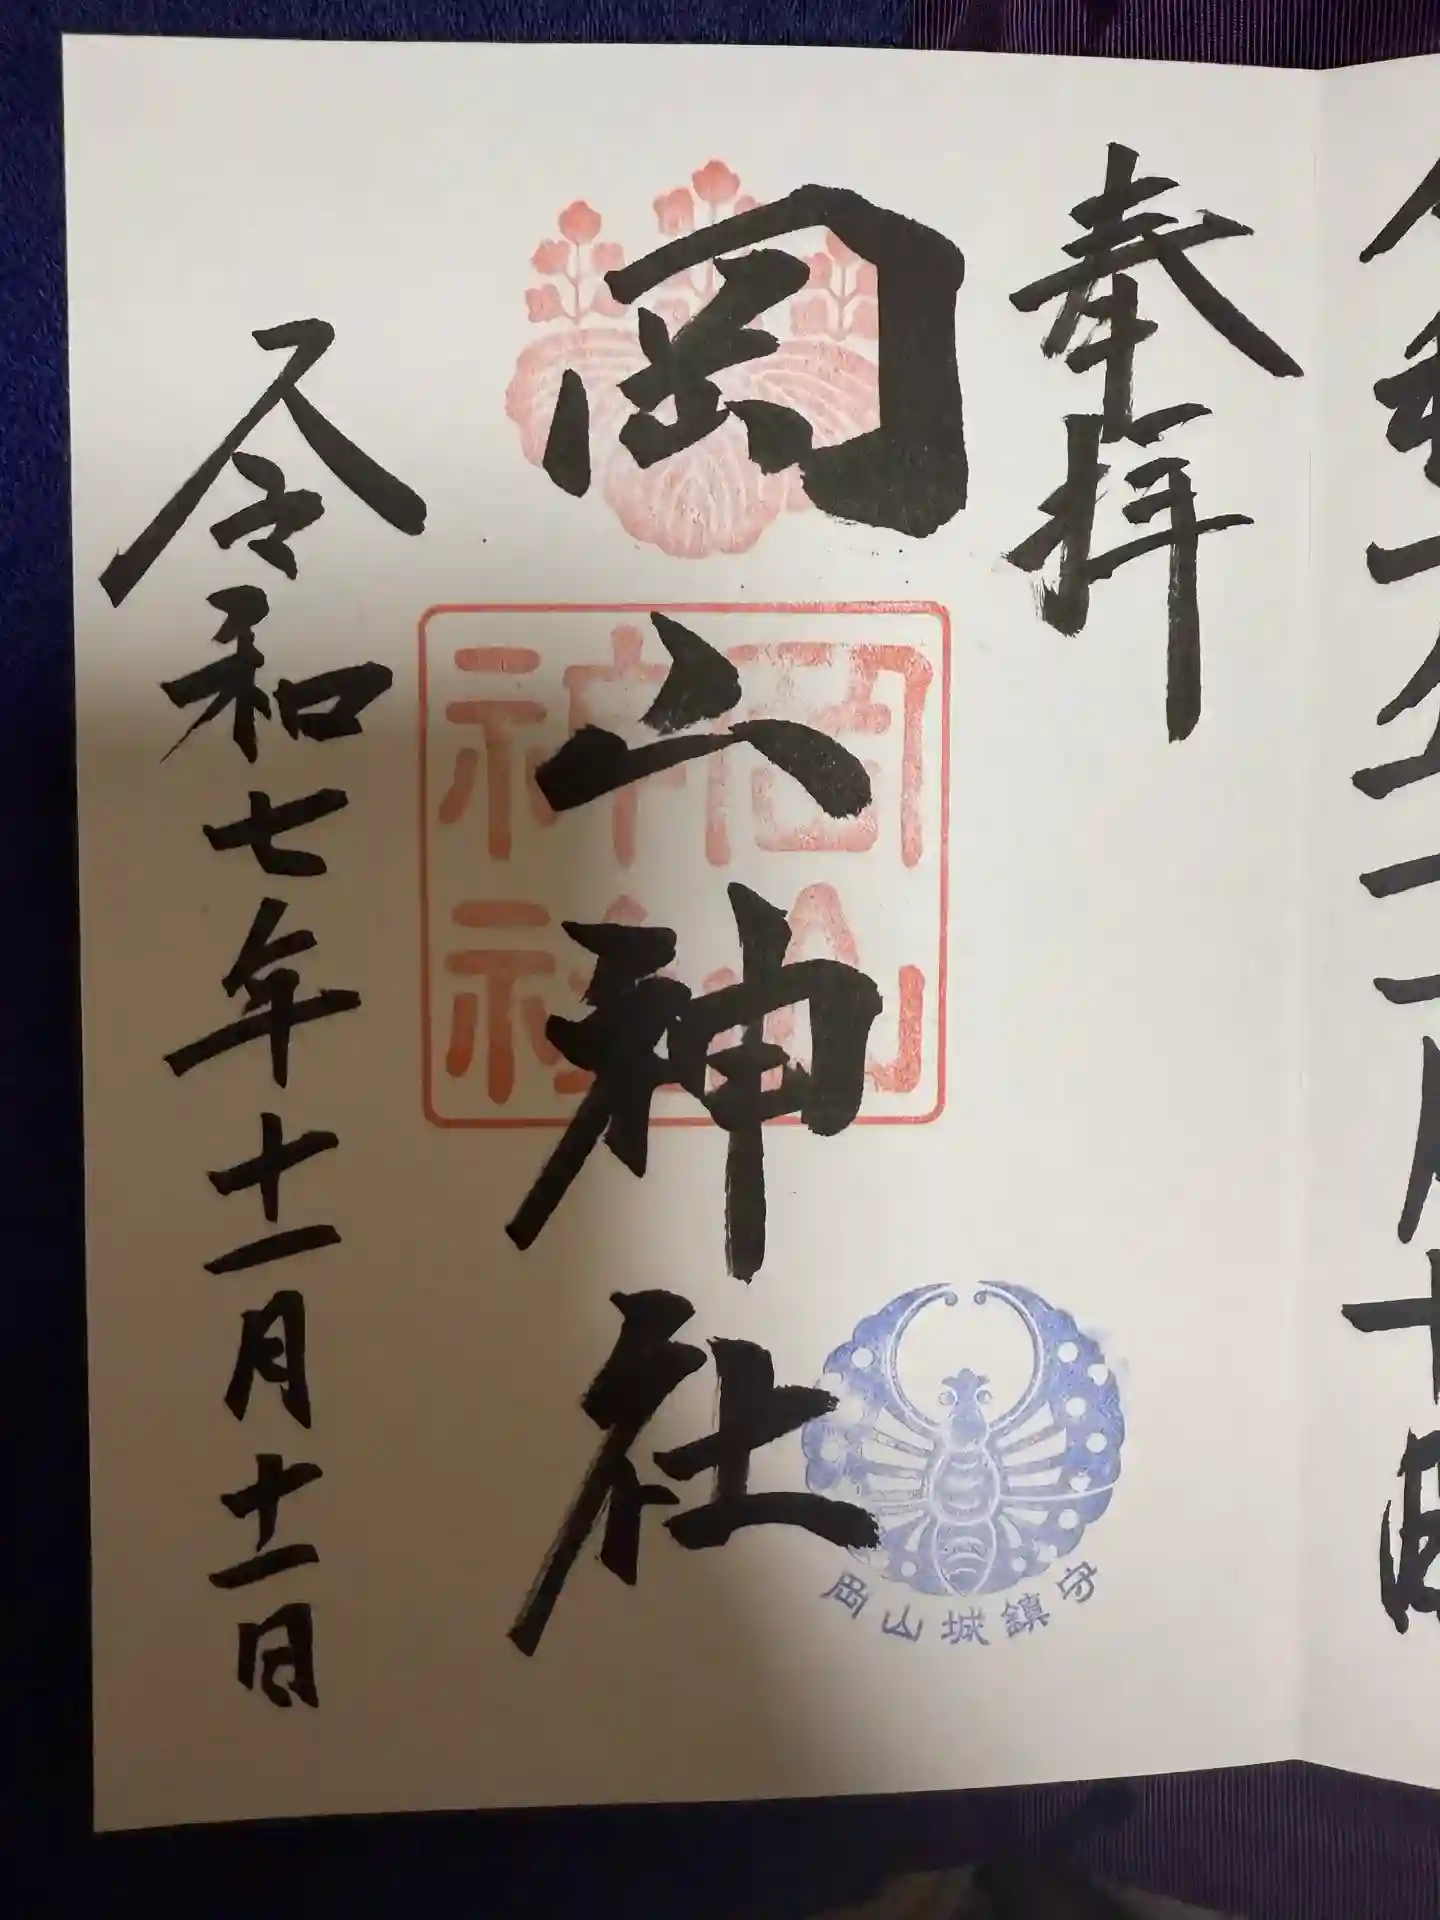 奉拝
岡山神社
岡山神社
岡山城鎮守
令和七年十一月十一日